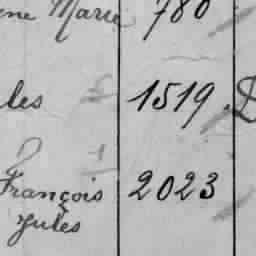 ne Marie 780
les 1519 D
François 2023
Jules